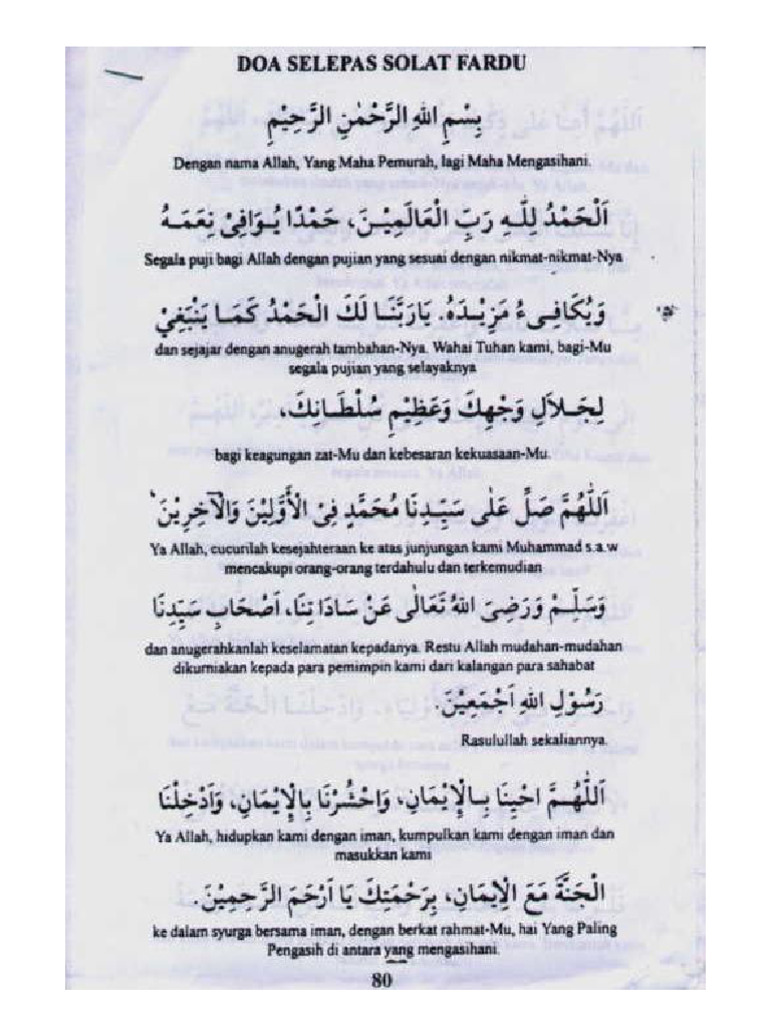 DOA SELEPAS SOLAT FARDU
بِسْمِ اللهِ الرَّحْمٰنِ الرَّحِيْمِ
Dengan nama Allah, Yang Maha Pemurah, lagi Maha Mengasihani.
اَلْحَمْدُ لِلّٰهِ رَبِّ الْعَالَمِيْنَ، حَمْدًا يُوَافِىْ نِعَمَهُ
Segala puji bagi Allah dengan pujian yang sesuai dengan nikmat-nikmat-Nya
وَيُكَافِىءُ مَزِيْدَهُ. يَارَبَّنَا لَكَ الْحَمْدُ كَمَا يَنْبَغِيْ
dan sejajar dengan anugerah tambahan-Nya. Wahai Tuhan kami, bagi-Mu
segala pujian yang selayaknya
لِجَلاَلِ وَجْهِكَ وَعَظِيْمِ سُلْطَانِكَ،
bagi keagungan zat-Mu dan kebesaran kekuasaan-Mu.
اَللّٰهُمَّ صَلِّ عَلٰى سَيِّدِنَا مُحَمَّدٍ فِىْ الْأَوَّلِيْنَ وَالْآخِرِيْنَ
Ya Allah, cucurilah kesejahteraan ke atas junjungan kami Muhammad s.a.w
mencakupi orang-orang terdahulu dan terkemudian
وَسَلِّمْ وَرَضِىَ اللهُ تَعَالٰى عَنْ سَادَاتِنَا، اَصْحَابِ سَيِّدِنَا
dan anugerahkanlah keselamatan kepadanya. Restu Allah mudahan-mudahan
dikurniakan kepada para pemimpin kami dari kalangan para sahabat
رَسُوْلِ اللهِ اَجْمَعِيْنَ.
Rasulullah sekaliannya.
اَللّٰهُمَّ احْيِنَا بِالْاِيْمَانِ، وَاحْشُرْنَا بِالْاِيْمَانِ، وَاَدْخِلْنَا
Ya Allah, hidupkan kami dengan iman, kumpulkan kami dengan iman dan
masukkan kami
الْجَنَّةَ مَعَ الْاِيْمَانِ، بِرَحْمَتِكَ يَا اَرْحَمَ الرَّحِمِيْنَ.
ke dalam syurga bersama iman, dengan berkat rahmat-Mu, hai Yang Paling
Pengasih di antara yang mengasihani.
80